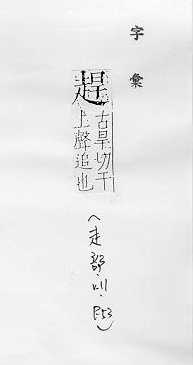 字彙
趕
古旱切干
上聲追也
(走部· ·P53)